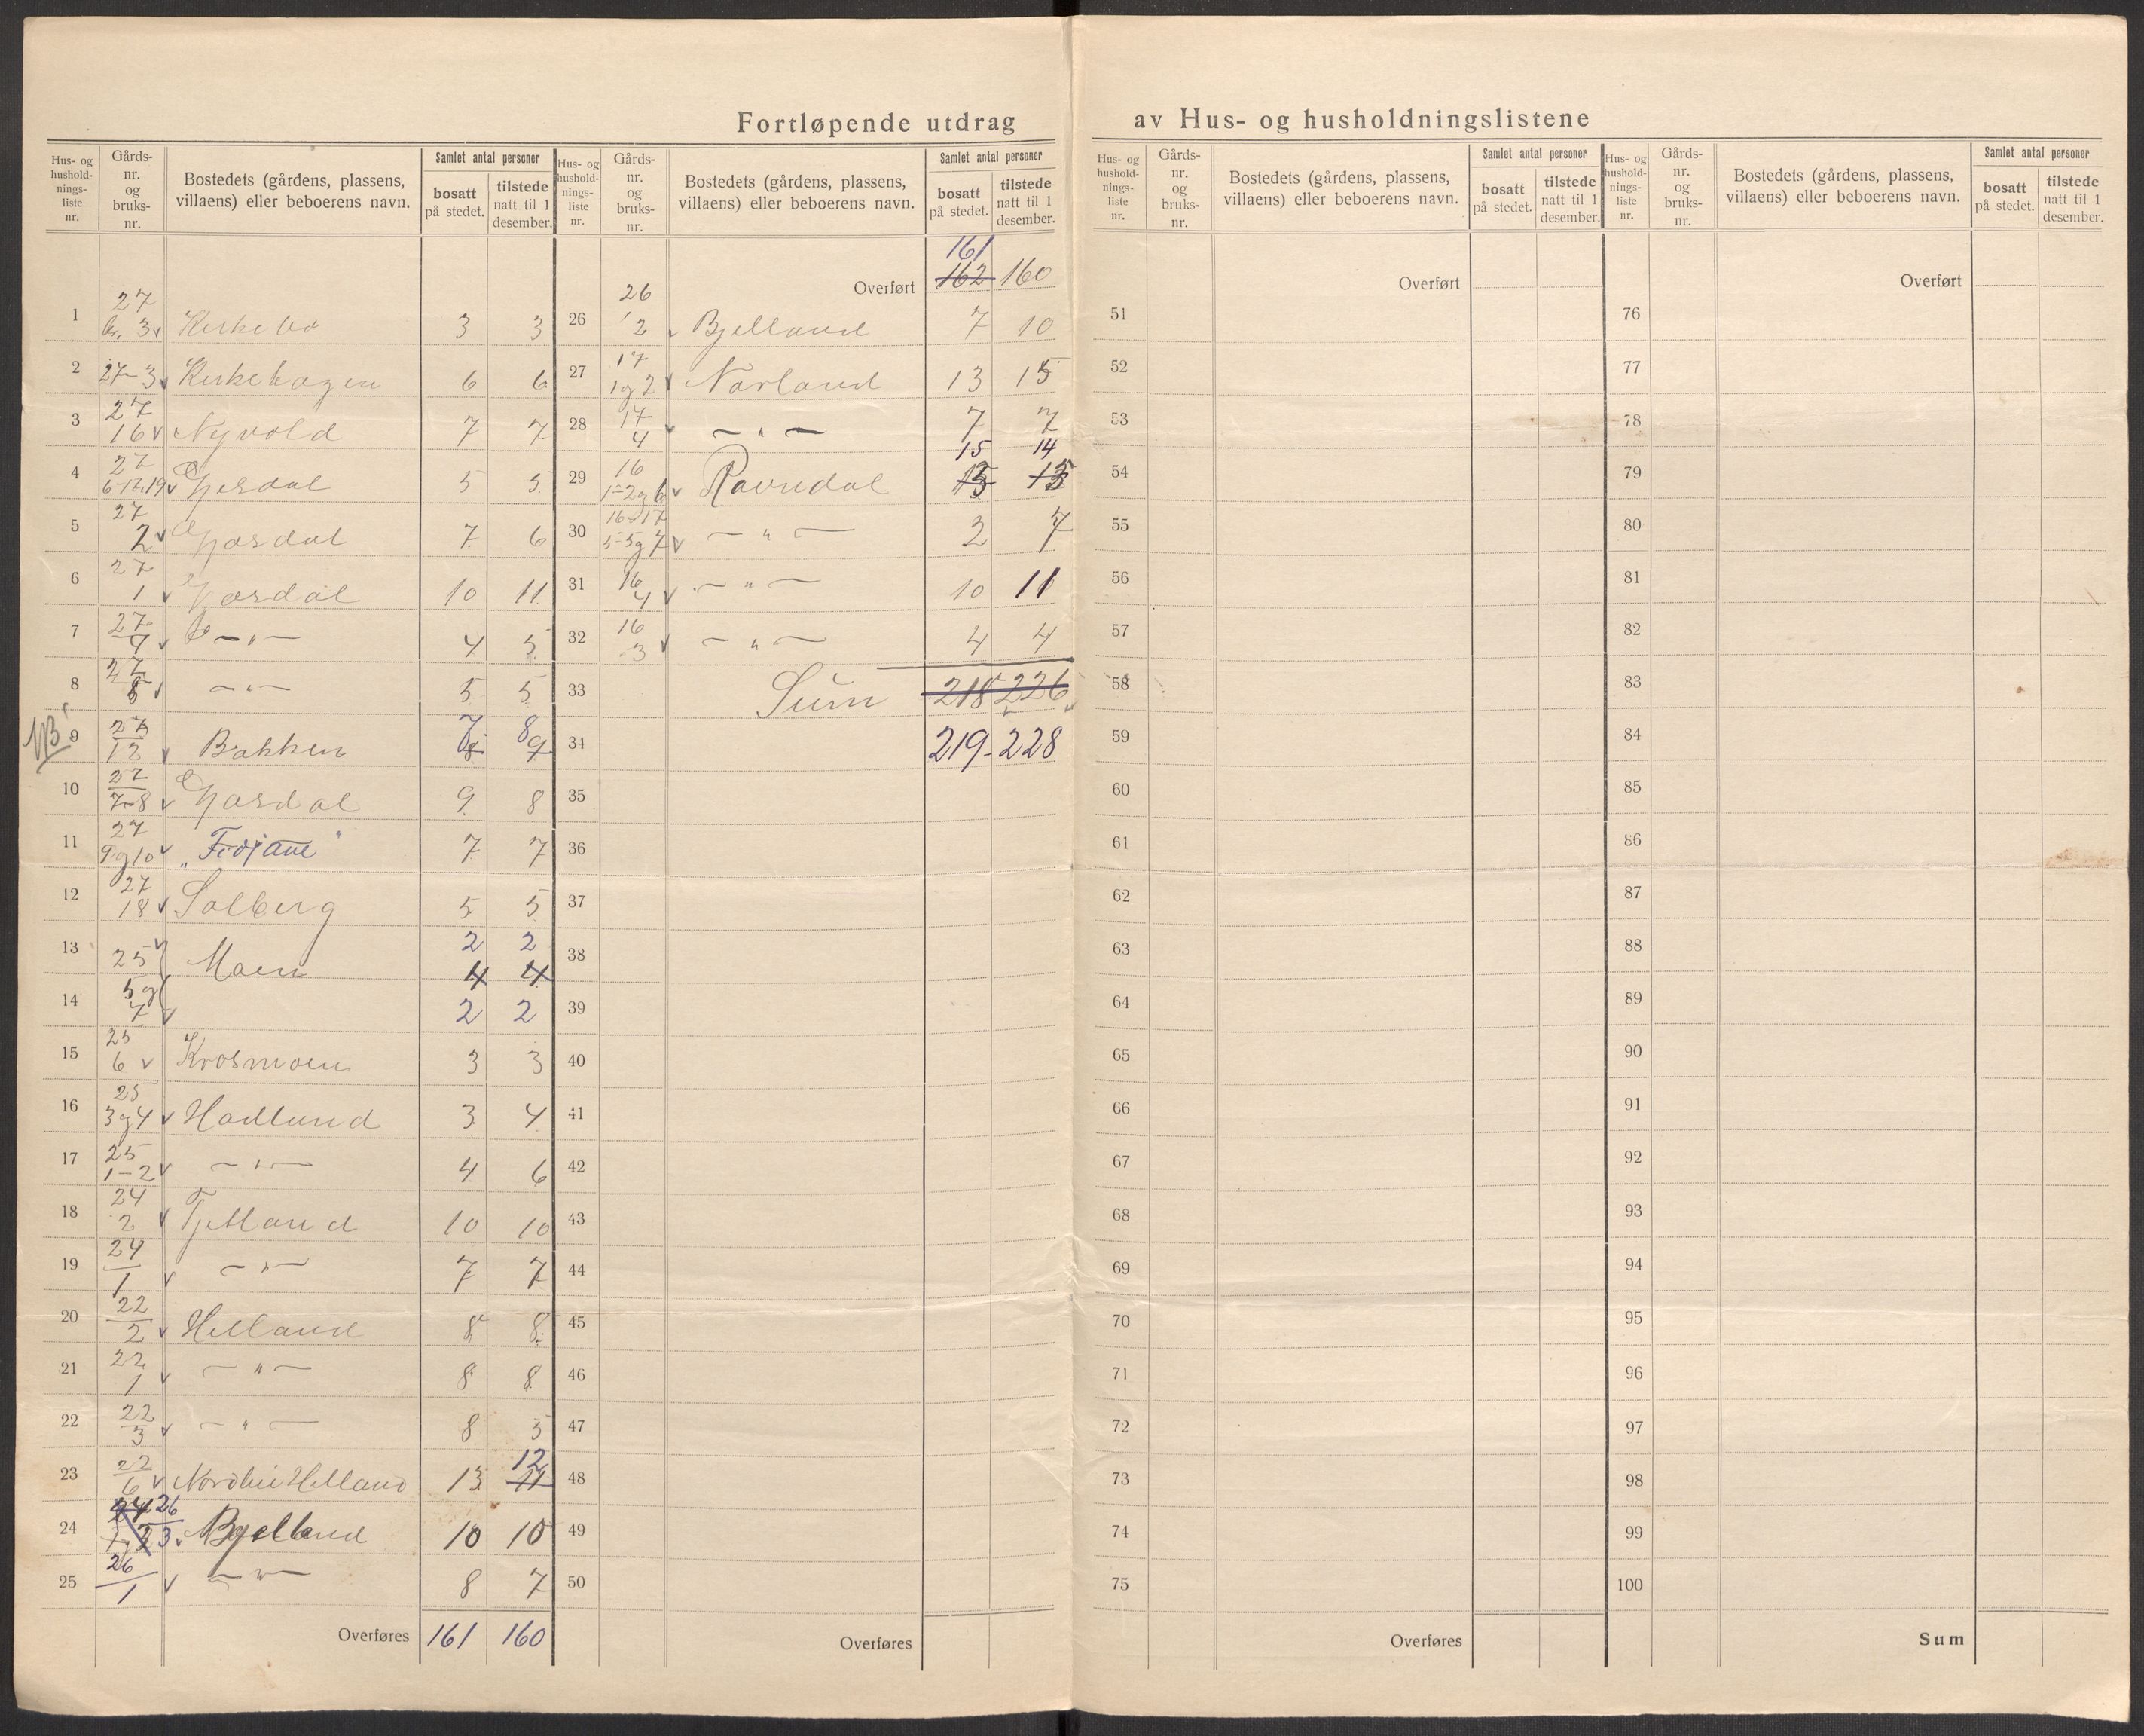 Fortløpende utdrag av Hus- og husholdningslistene
Hus- og husholdnings-liste nr. Gårds-nr. og bruks-nr. Bostedets (gårdens, plassens, villaens) eller beboerens navn. Samlet antal personer bosatt på stedet. tilstede natt til 1 desember.
1 27 br. 3 v Kirkebø 3 3
2 27-3 v Kirkehagen 6 6
3 27 16 v Nyvold 7 7
4 27 v Gjesdal 5 5
5 27 2 v Gjæsdal 7 6
6 27 1 v Gjæsdal 10 11
7 27 v — " — 4 5
8 27 v — " — 5 5
NB 9 27 12 v Bakken 7 8 8 9
10 27 7-8 v Gjæsdal 9 8
11 27 9 og 10 v "Fidjane" 7 7
12 27 18 v Solberg 5 5
13 25 v Moen 2 2 4 4
14 5 og 7 v 2 2
15 25 6 v Krosmoen 3 3
16 25 3 og 4 v Hadland 3 4
17 25 1-2 v — " — 4 6
18 24 2 v Tjelland 10 10
19 24 1 v — " — 7 7
20 22 2 v Helland 8 8
21 22 1 v — " — 8 8
22 22 3 v — " — 8 5
23 22 6 v Nordlii Helland 13 12 11
24 26 3 v Bjelland 10 10
25 26 1 v — " — 8 7
Overføres 161 160
Hus- og husholdnings-liste nr. Gårds-nr. og bruks-nr. Bostedets (gårdens, plassens, villaens) eller beboerens navn. Samlet antal personer bosatt på stedet. tilstede natt til 1 desember.
Overført 161 162 160
26 26 2 v Bjelland 7 10
27 17 1 og 2 v Norland 13 15
28 17 4 v — " — 7 7
29 16 1-2 og 6 v Ravndal 15 14
30 16-17 5-5 og 7 v — " — 2 7
31 16 4 v — " — 10 11
32 16 3 v — " — 4 4
33 Sum 218 226
34 219 - 228
35
36
37
38
39
40
41
42
43
44
45
46
47
48
49
50
Overføres
Hus- og husholdnings-liste nr. Gårds-nr. og bruks-nr. Bostedets (gårdens, plassens, villaens) eller beboerens navn. Samlet antal personer bosatt på stedet. tilstede natt til 1 desember.
Overført
51
52
53
54
55
56
57
58
59
60
61
62
63
64
65
66
67
68
69
70
71
72
73
74
75
Overføres
Hus- og husholdnings-liste nr. Gårds-nr. og bruks-nr. Bostedets (gårdens, plassens, villaens) eller beboerens navn. Samlet antal personer bosatt på stedet. tilstede natt til 1 desember.
Overført
76
77
78
79
80
81
82
83
84
85
86
87
88
89
90
91
92
93
94
95
96
97
98
99
100
Sum